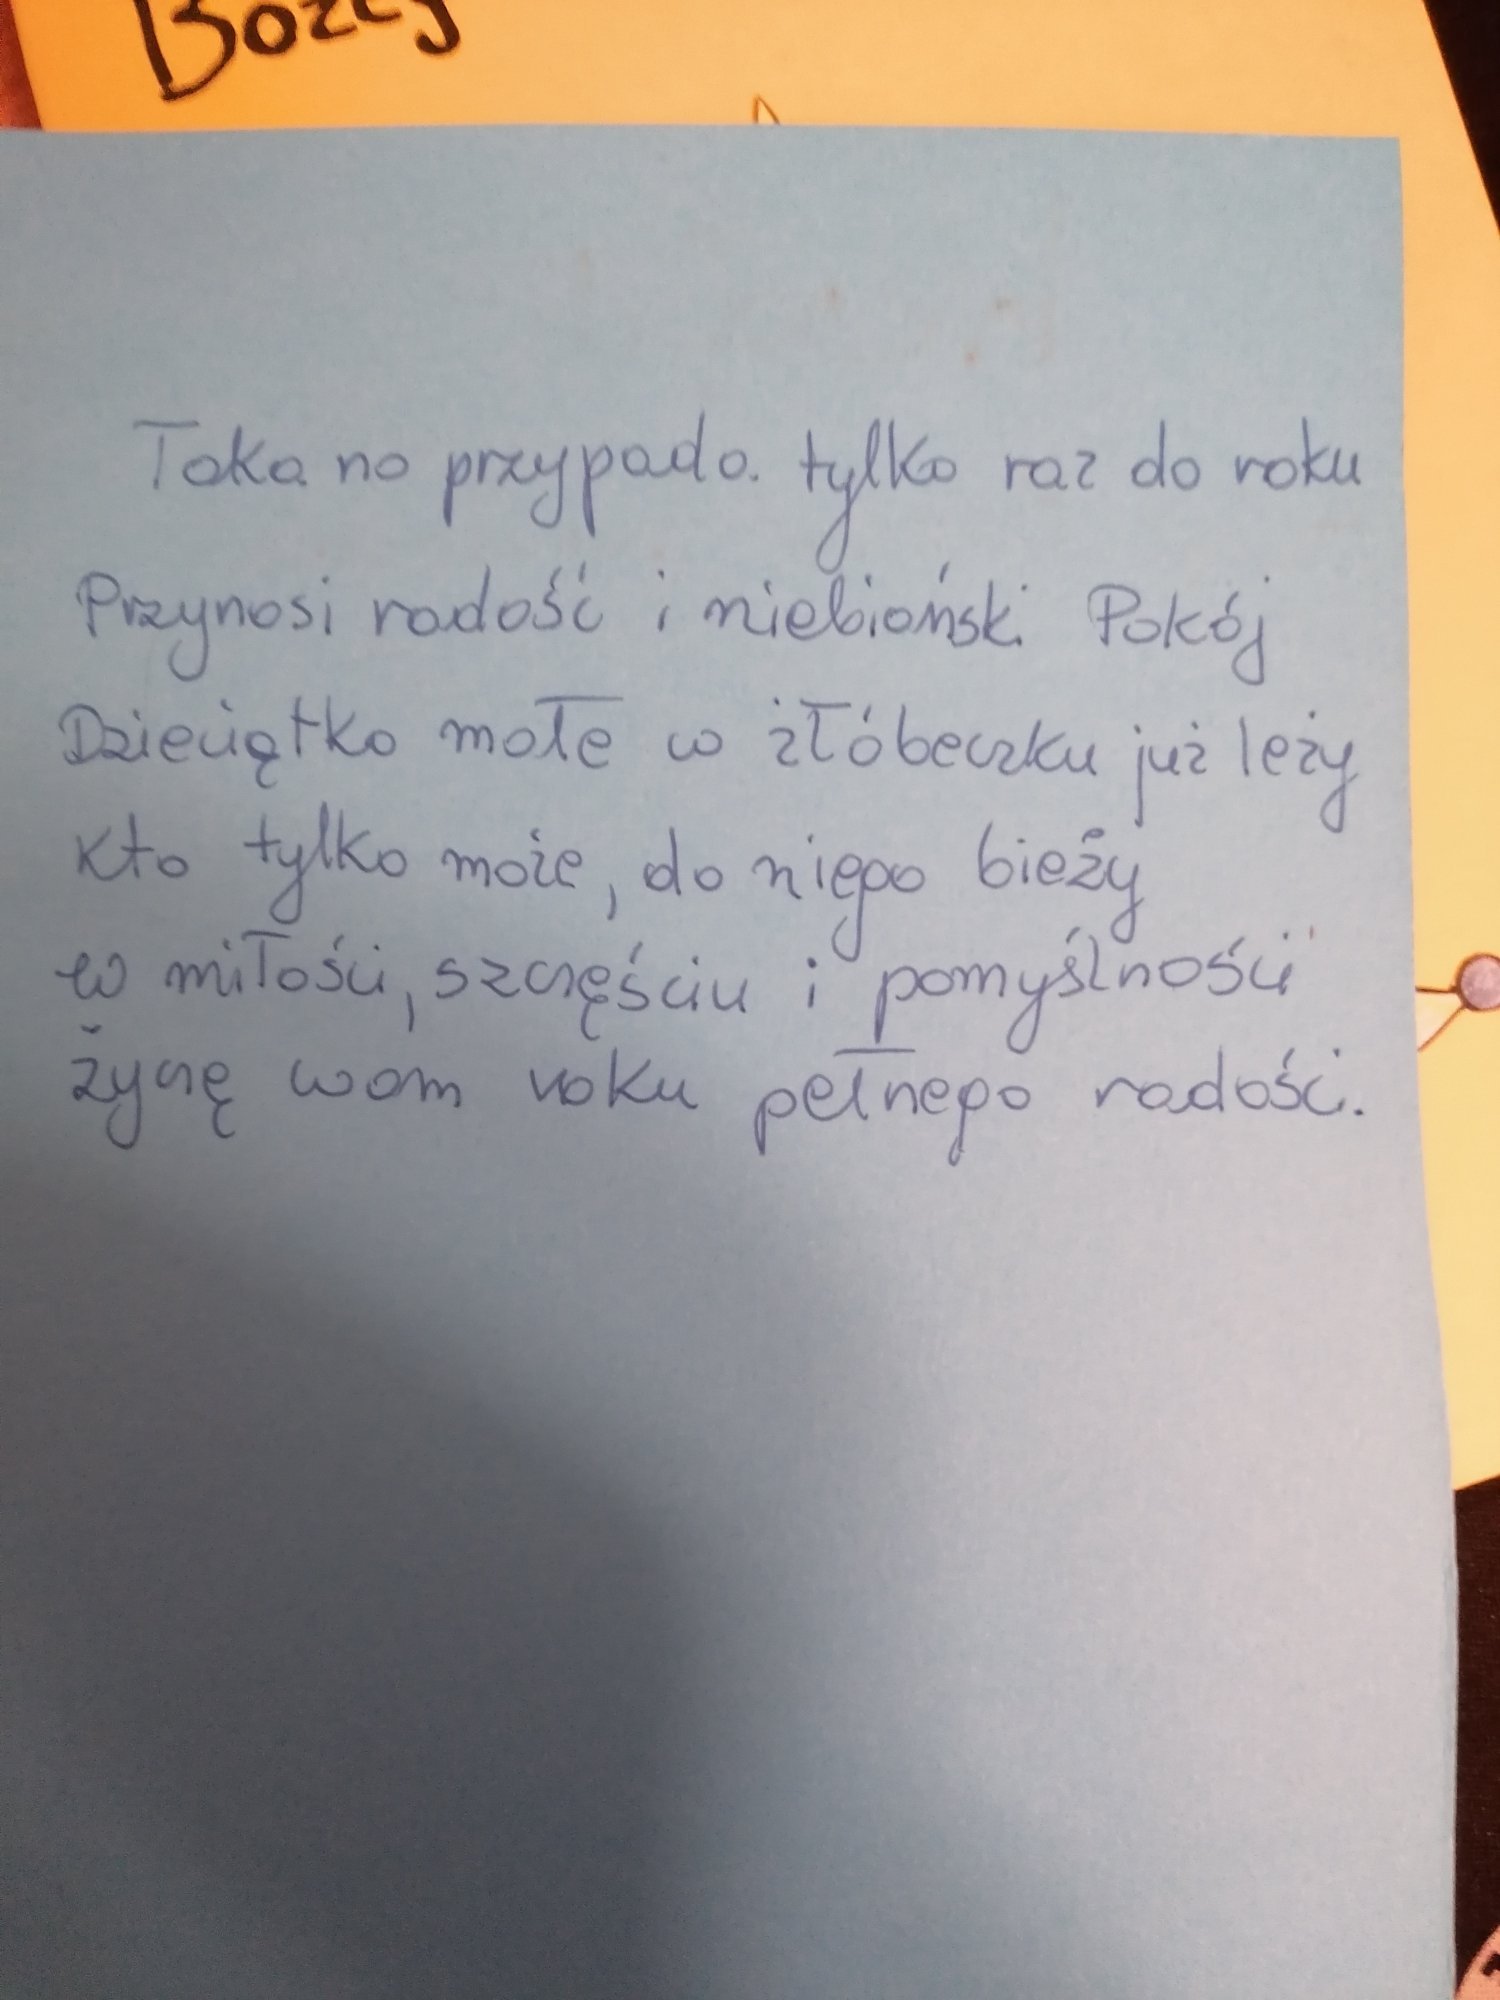 Bożej
Taka no przypada. tylko raz do roku
Przynosi radość i niebiański Pokój
Dzieciątko małe w żłóbeczku już leży
Kto tylko może, do niego bieży
w miłości, szczęściu i pomyślności
życzę wam roku pełnego radości.